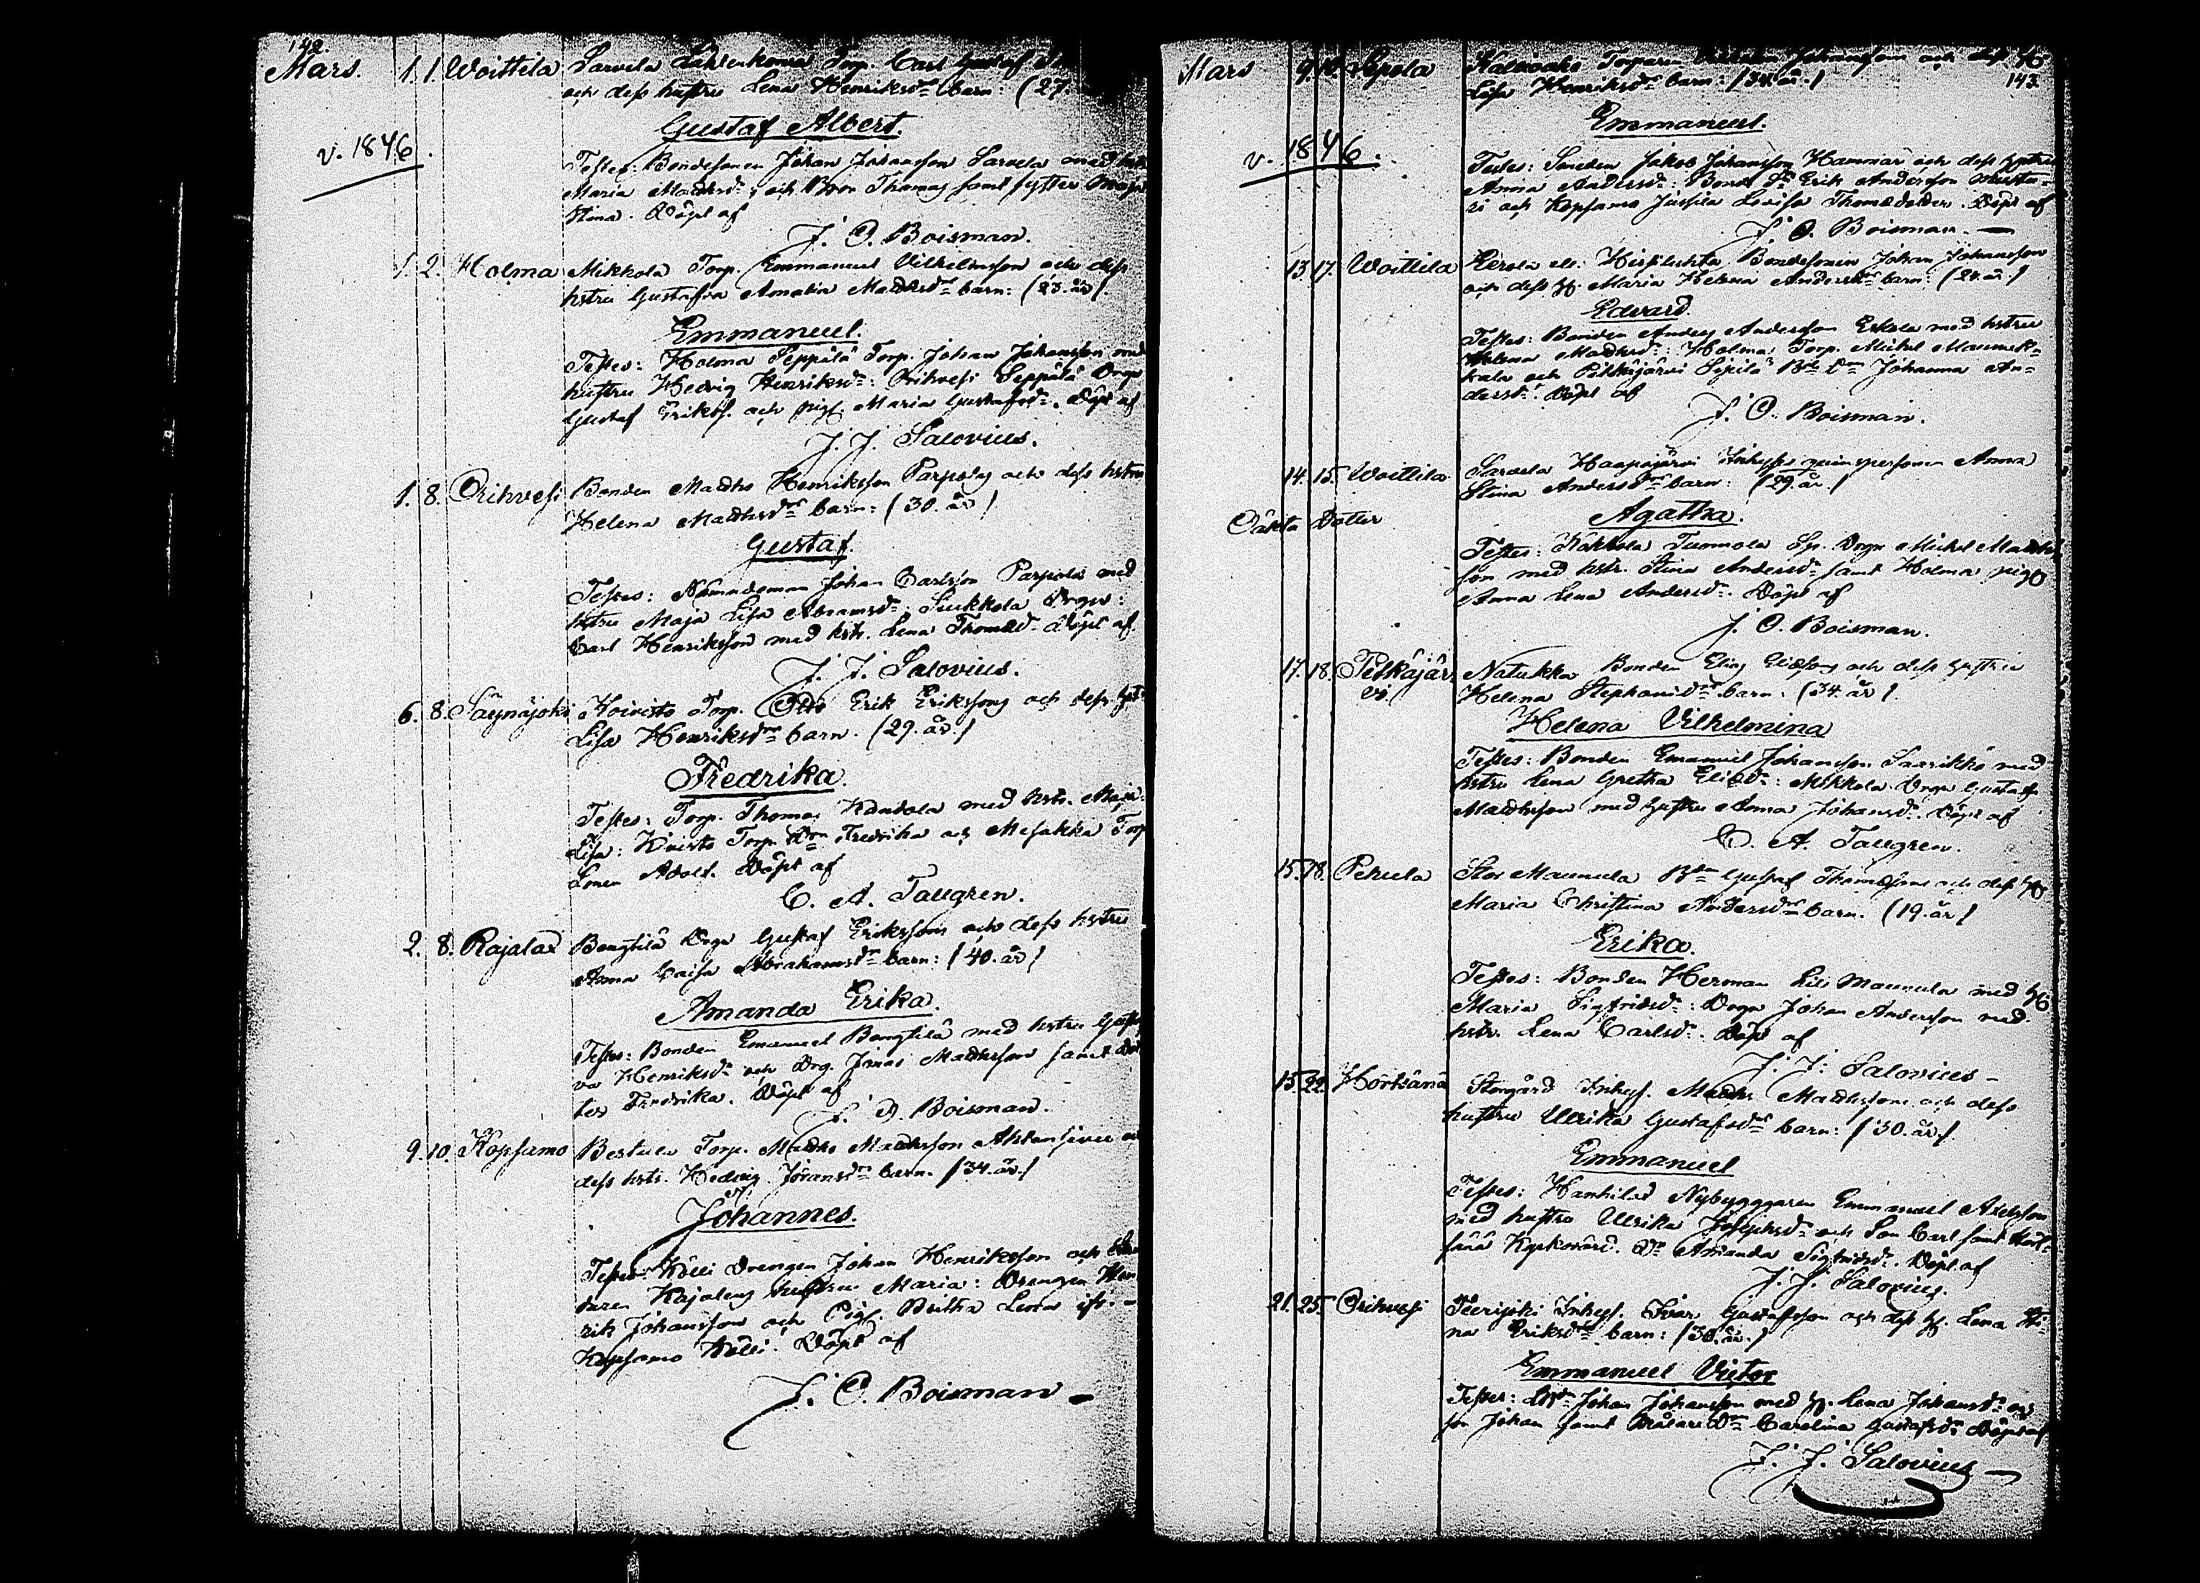 142.
Mars. 1. 1. Woittila Sarvela Torp. Carl Gustaf
och dess hustru Lena Henriksdr barn: (27.
Gustaf Albert.
v. 1846.
Testes: Bondesonen Johan Johansson Sarvela med
Maria Matthsdr; och Thomas samt syster Maja
Stina. Döpt af
J. O. Boisman.
1. 2. Holma Mikkola Torp. Emmanuel Vilhelmsson och dess
hstru Gustafva Amalia Matthsdr barn: (23. år).
Emmanuel.
Testes: Holma Seppälä Torp. Johan Johansson med
hustru Hedvig Henriksdr: Orihvesi Seppälä Drgn
Gustaf Erikss. och pig. Maria Gustafsdr. Döpt af
J. J. Salovius.
1. 8. Orihvesi Bonden Matths Henriksson Parpola och dess hstru
Helena Matthsdr barn: (30. år)
Gustaf.
Testes: Nämndeman Johan Carlsson Parpola med
hstru Maja Lisa Abramsdr; Siukkola Drgn:
Carl Henriksson med hstr. Lena Thomædr Döpt af
J. J. Salovius.
6. 8. Säynäjoki Koivisto Torp. Otto Erik Erikssons och dess
Lisa Henriksdr barn. (29. år.)
Fredrika.
Testes: Torp. Thomas med hstr. Maja
Lisa: Koivisto Torp. Drn Fredrika och Mesakka Torp
Sonen Adolf. Döpt af
C. A. Taugren.
2. 8. Rajalax Bengtilä Drgn Gustaf Erikssons och dess hstru
Anna Caisa Abrahamsdr barn: (40. år)
Amanda Erika.
Testes: Bonden Emanuel Bengtilä med hstru
va Henriksdr och Drg. Jonas Matthsson samt
ter Fredrika. Döpt af
J. O. Boisman.
9. 10. Kopsamo Bestula Torp. Matths Matthsson
dess hstr. Hedvig Jöransdr barn. (34. år.)
Johannes.
Testes: Kölli Drengen Johan Henriksson och
Kajalens hustru Maria: Drengen Hen
rik Johansson och Pig. Britha Lena
Kopsamo Kölli. Döpt af
J. O. Boisman
143.
Mars 9. 10. Sepola Torparen Johansson och dess H
Lisa Henriksdr barn: (34. år.)
Emmanuel.
v. 1846.
Testes: Smeden Jakob Johansson Hammar och dess hustru
Anna Andersdr: Bonde Sn Erik Andersson
ri och Kopsamo Jussila Lovisa Thomædotter. Döpt af
J. O. Boisman.
13. 17. Woittila Bondesonen Johan Johansson
och dess H. Maria Helena Andersdr barn: (24. år.)
Edvard.
Testes: Bonden Anders Andersson Eskola med hstru
Helena Matthsdr: Holma Torp. Michel
kala och Pitkäjärvi Sipilä Johanna An-
dersdr. Döpt af
J. O. Boisman.
14. 15. Woittila Sarvela Haapajärvi Inhyses qvinspersonen Anna
Stina Andersdr barn: (29. år.)
Oäkta Dotter
Agatha.
Testes: Kokkola Tuomola Drgn Michel Matths
son med hstr. Stina Andersdr samt Holma pig
Anna Lena Andersdr. Döpt af
J. O. Boisman.
17. 18. Pitkäjär-
vi. Natukka Bonden Elias Eliæsons och dess hustru
Helena Stephansdr barn: (34. år)
Helena Vilhelmina
Testes: Bonden Emanuel Johansson Saarikko med
hstru Lena Gretha Eliædr: Mikkola Drgn Gustaf
Matthsson med hustru Anna Johansdr. Döpt af
C. A. Taugren.
15. 18. Pehula Stor Maunula Bdn Gustaf Thomæsons och dess H
Maria Christina Andersdr barn. (19. år)
Erika.
Testes: Bonden Herman Lill Maunula med H
Maria Sigfridsdr: Drgn Johan Andersson med
hstr. Lena Carlsdr. Döpt af
J. J. Salovius
15. 22. Hörtsänä Storgård Inhys. Matths Matthssons och dess
hustru Ulrika Gustafsdr barn: (30. år).
Emmanuel
Testes: Hanhilax Nybyggaren Emmanuel Andersson
med hustru Ulrika Josephsdr och Son Carl samt Hört-
sänä Kyrkovärd. Dr Amanda Sigfridsdr. Döpt af
J. J. Salovius.
21. 25. Orihvesi Teerijoki Inhys. Ivar Gustafsson och dess H. Lena Sti-
na Eriksdr barn: (30. år.)
Emmanuel Victor
Testes: Johan Johansson med H. Lena Johansdr och
son Johan samt Målare Dr Carolina Gustafsdr Döpt af
J. J. Salovius